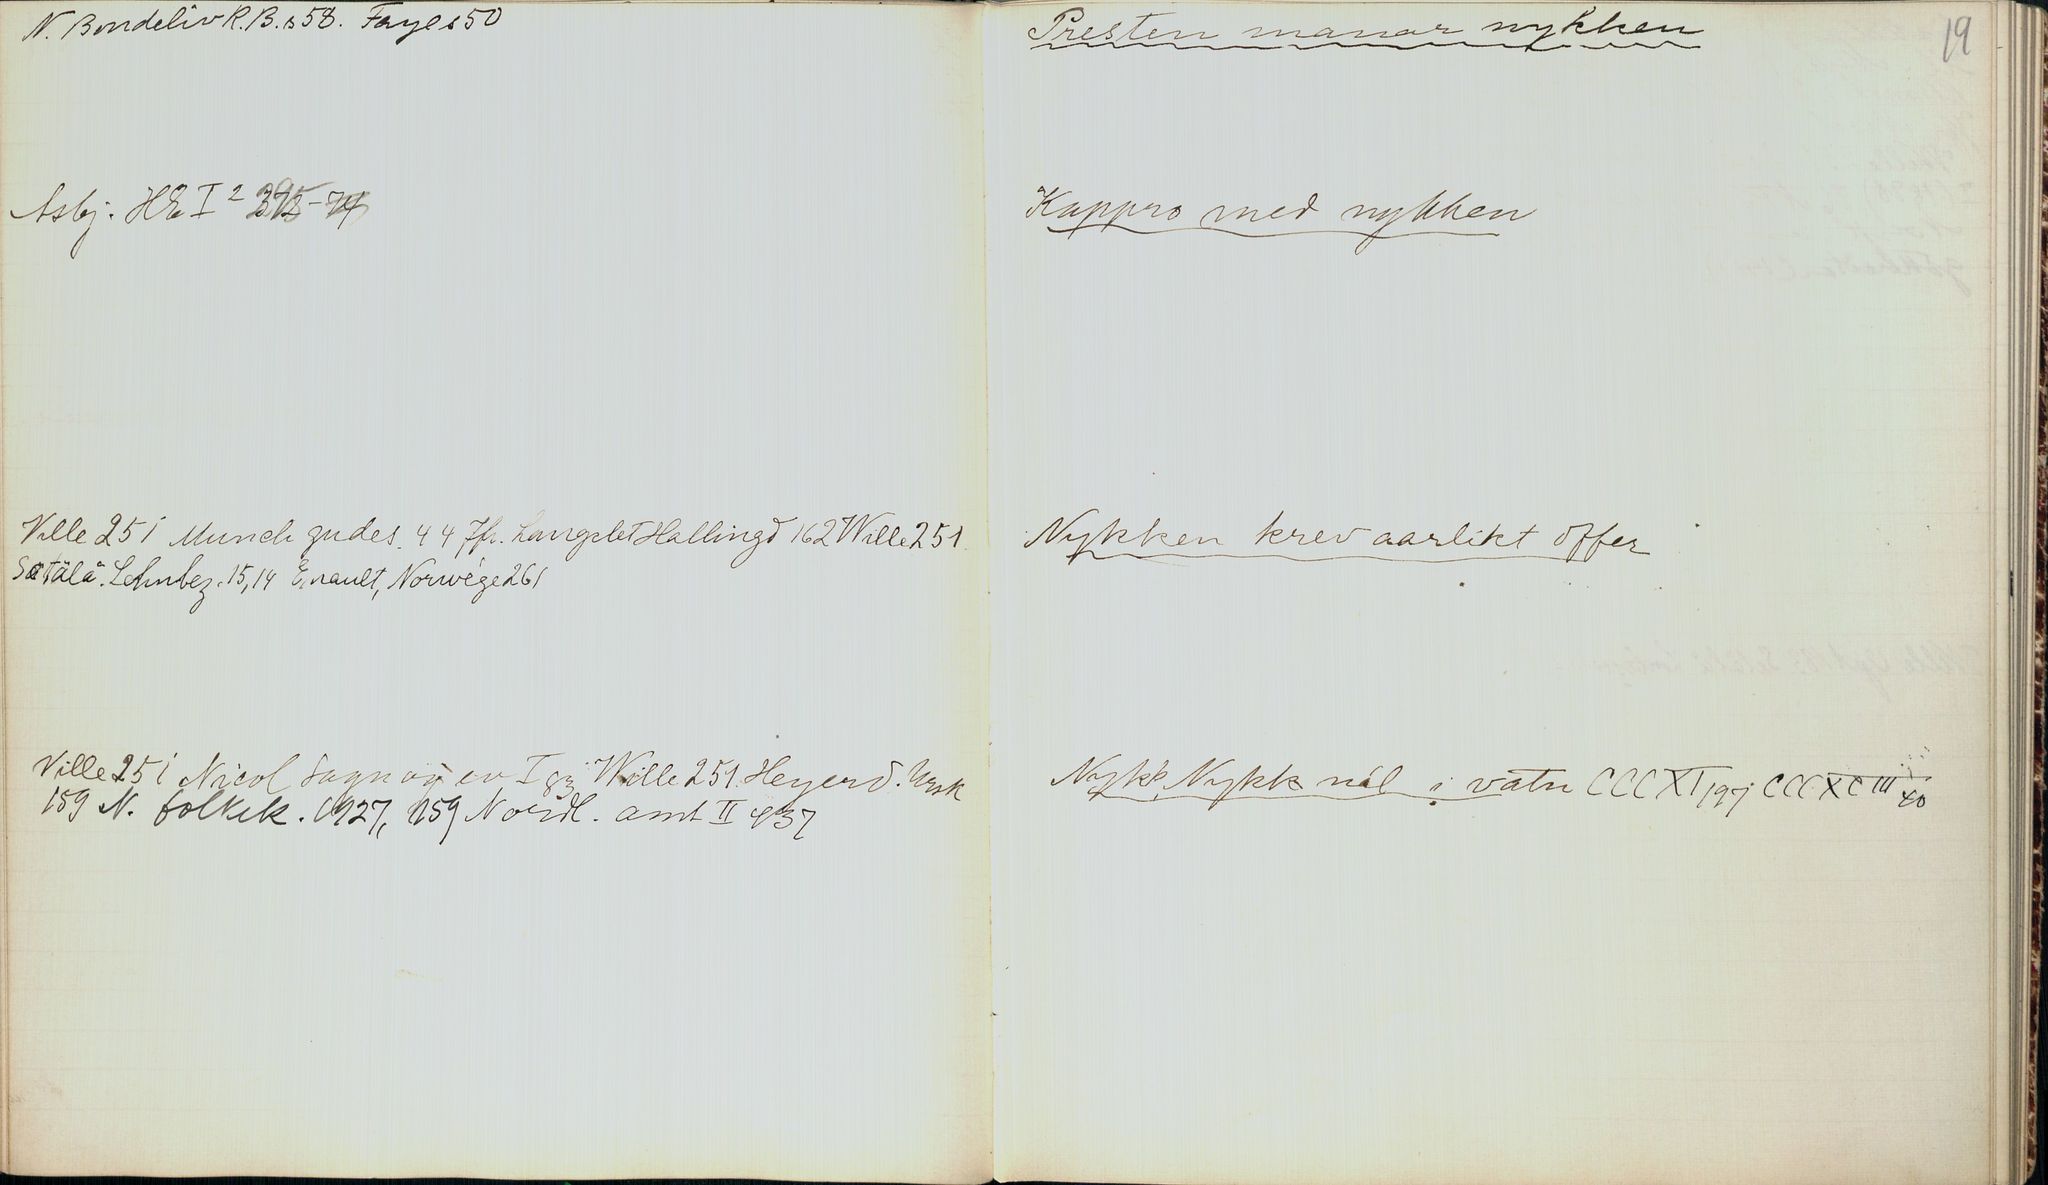 N. Bondeliv R.B. s 58. Faye s 50
Asbj. HE I²
Ville 251 Munch gudes. 44 Jfr. Langeb Hallingd 162 Wille 251.
Setälä. Lehnbez. 15,14 Enault, Norwége 261
Ville 251 Nicol Sagn og ev I 83 Wille 251. Heyerd. Ursk
159 N. folkek. 1927, 159 Nordl. amt II 437
19
Presten manar nykken
Kappro med nykken
Nykken krev aarlikt offer
Nykk, Nykk nål i vatn CCCXI 197; CCCXCIII 40